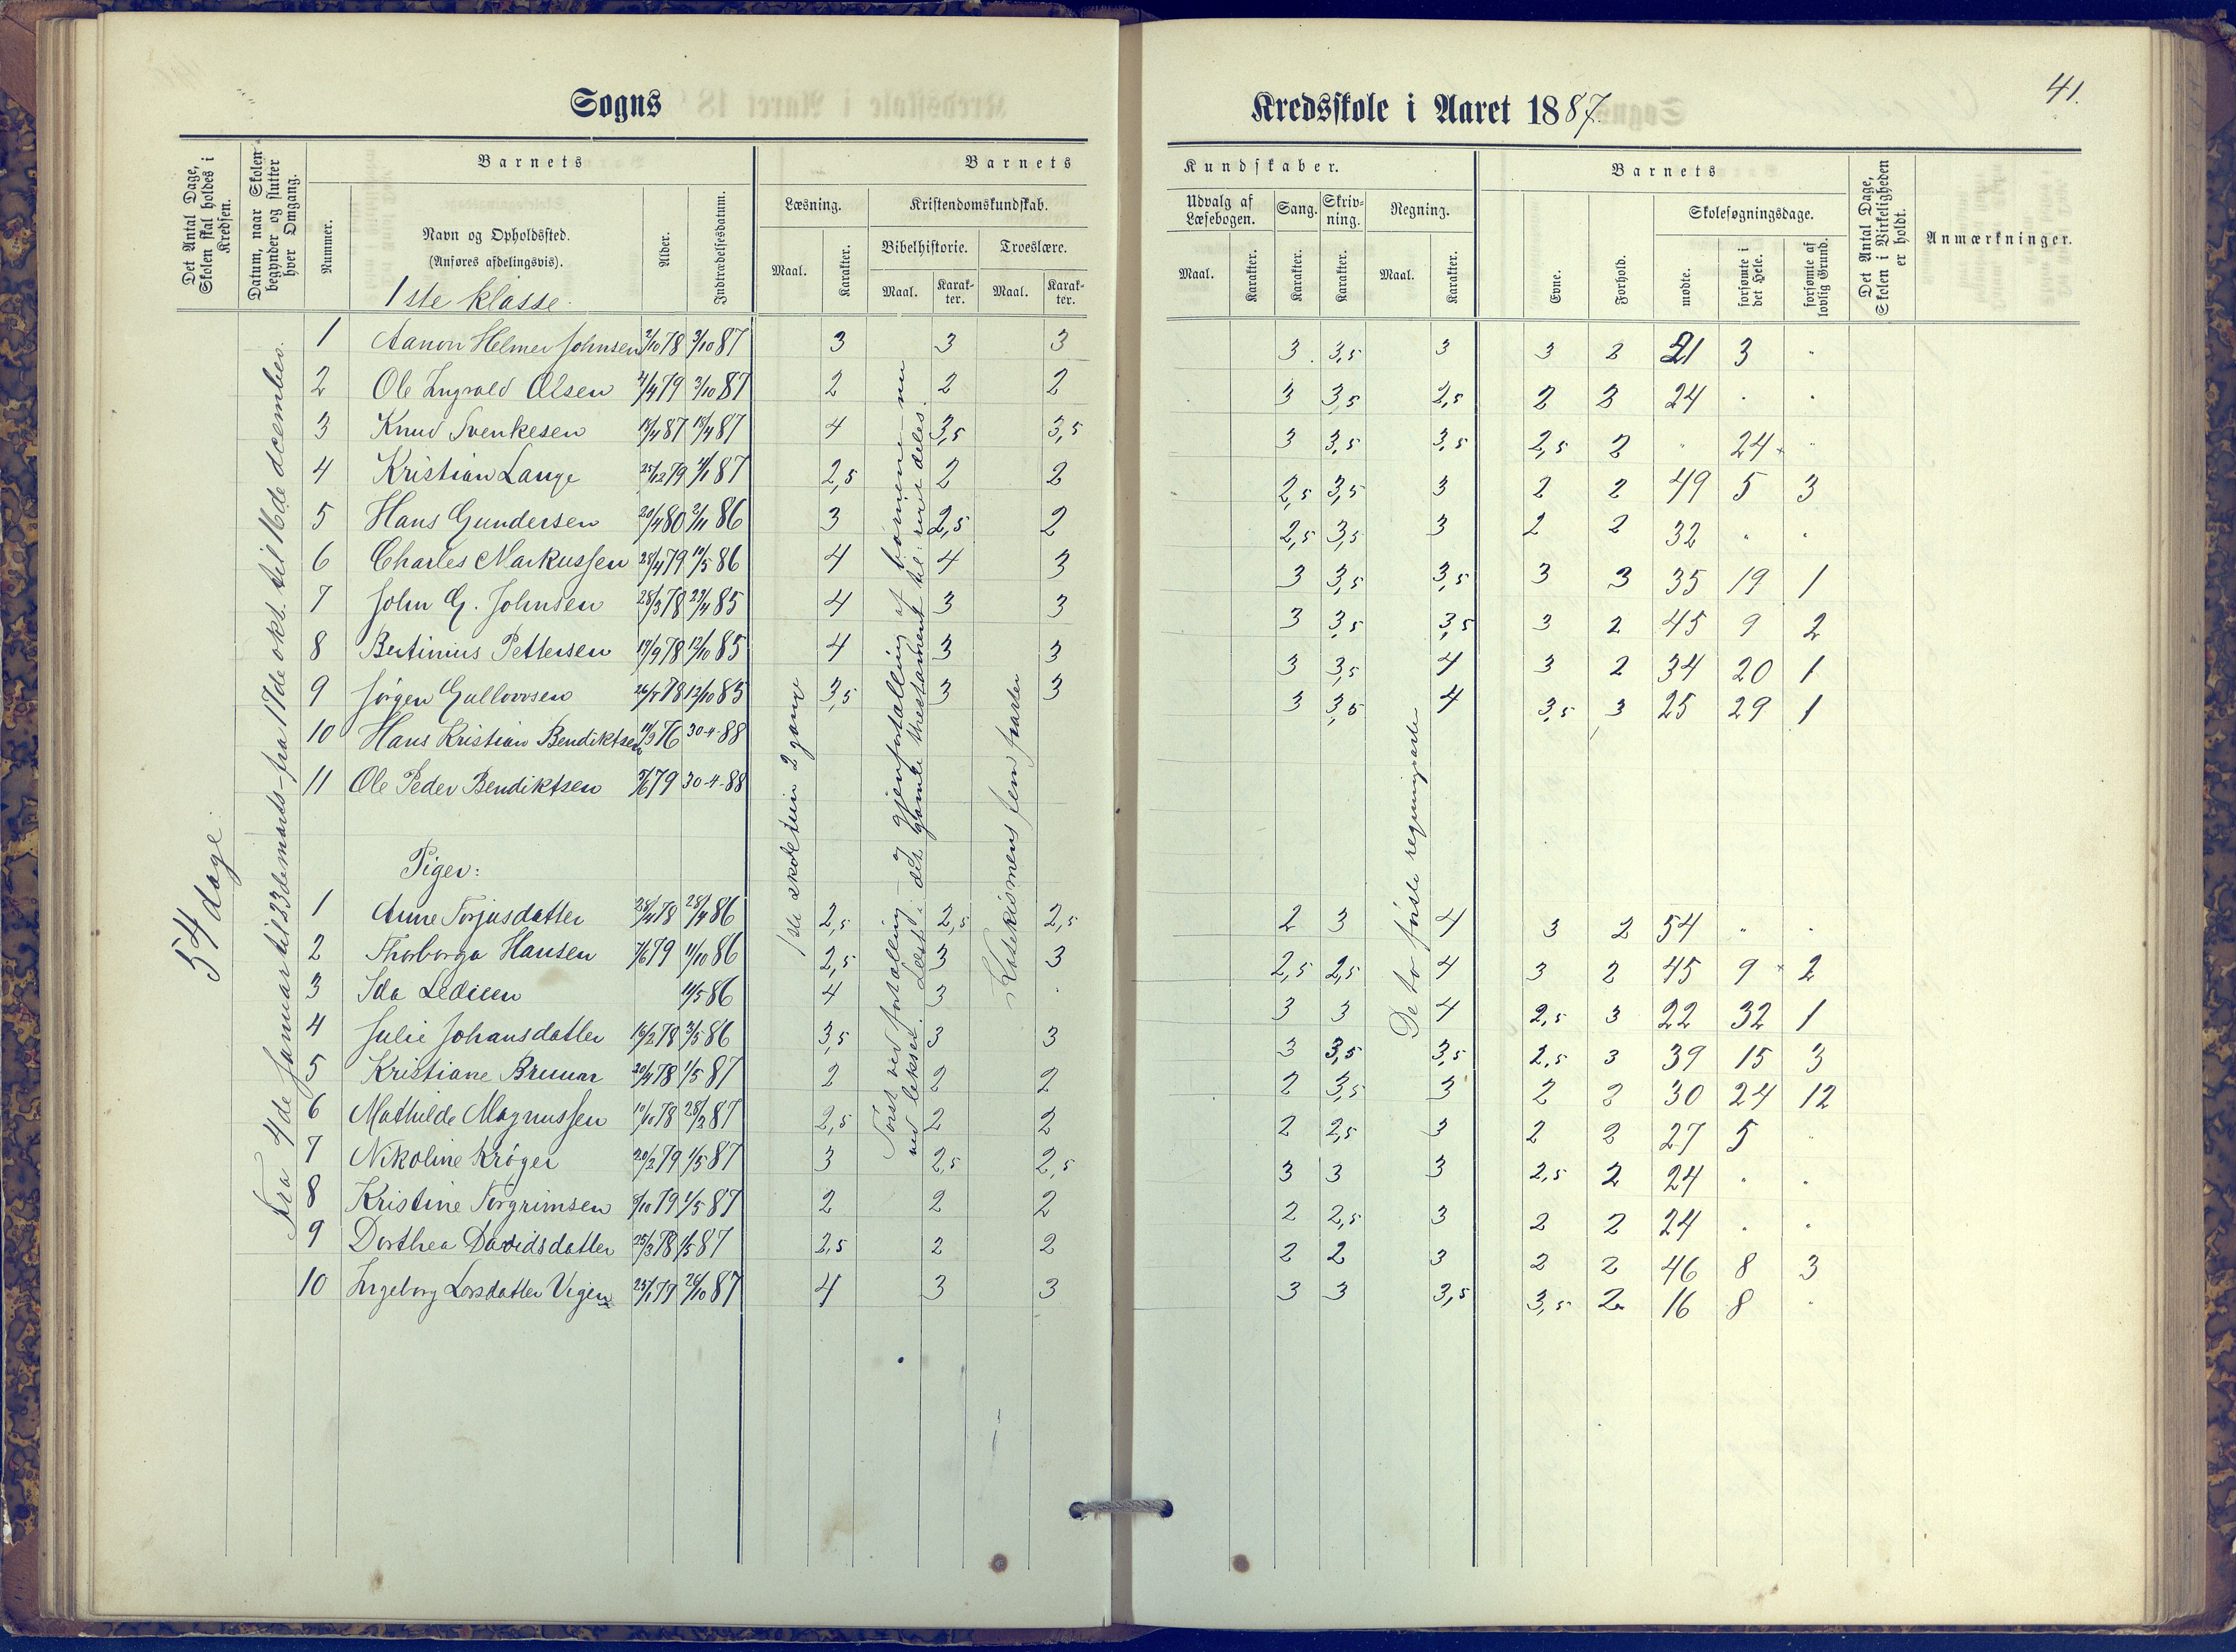 41.
Sogns Kredsskole i Aaret 1887.
Det Antal Dage, Skolen skal holdes i Kredsen.
Datum, naar Skolen begynder og slutter hver Omgang.
Barnets
Nummer.
Navn og Opholdssted.
(Anføres afdelingsvis).
1ste klasse.
Alder.
Indtrædelsesdatum.
Barnets Kundskaber.
Læsning.
Maal.
Karakter.
Kristendomskundskab.
Bibelhistorie.
Maal.
Karakter.
Troeslære.
Maal.
Karakter.
Udvalg af Læsebogen.
Maal.
Karakter.
Sang.
Karakter.
Skrivning.
Karakter.
Regning.
Maal.
Karakter.
Barnets
Evne.
Forhold.
Skolesøgningsdage.
mødte.
forsømte i det Hele.
forsømte af lovlig Grund.
Det Antal Dage, Skolen i Virkeligheden er holdt.
Anmærkninger.
54 dage.
Fra 4de Januar til 23de marts - fra 17de okt. til 16de december.
1ste skoletrin 2 gang
Først ved fortælling og gjenfortælling af børnene - nu
ved lekser. Læst: det gamle testament til: rert deles.
Katekismens fem parter
De to første regningsarter
1 Aanon Helmer Johnsen 2/10 78 3/10 87 3 3 3 3 3,5 3 3 2 21 3 "
2 Ole Ingvald Olsen 4/4 79 3/10 87 2 2 2 3 3,5 2,5 2 2 24 " "
3 Knud Svenkesen 18/4 87 18/4 87 4 3,5 3,5 3 3,5 3,5 2,5 2 " 24 "
4 Kristian Lange 25/12 79 4/1 87 2,5 2 2 2,5 3,5 3 2 2 49 5 3
5 Hans Gundersen 20/4 80 2/11 86 3 2,5 2 2,5 3,5 3 2 2 32 " "
6 Charles Markussen 28/4 79 10/5 86 4 4 3 3 3,5 3,5 3 3 35 19 1
7 John G. Johnsen 28/3 78 23/4 85 4 3 3 3 3,5 3,5 3 2 45 9 2
8 Bertinius Pettersen 19/9 78 12/10 85 4 3 3 3 3,5 4 3 2 34 20 1
9 Jørgen Gullovsen 26/5 78 12/10 85 3,5 3 3 3 3,5 4 3,5 3 25 29 1
10 Hans Kristian Bendiktsen 19/3 76 30-4-88
11 Ole Peder Bendiktsen 5/6 79 30-4-88
Piger:
1 Anne Torjusdatter 28/4 78 28/4 86 2,5 2,5 2,5 2 3 4 3 2 54 " "
2 Thorborga Hansen 7/6 79 11/10 86 2,5 3 3 2,5 2,5 4 3 2 45 9 2
3 Ida Ledieen 11/5 86 4 3 " 3 3 4 2,5 3 22 32 1
4 Julie Johansdatter 16/2 78 3/5 86 3,5 3 3 3 3,5 3,5 2,5 3 39 15 3
5 Kristiane Bruun 20/4 78 1/5 87 2 2 2 2 3,5 3 2 2 30 24 12
6 Mathilde Magnussen 10/10 78 28/3 87 2,5 2 2 2 2,5 3 2 2 27 5 "
7 Nikoline Krøger 20/2 79 1/5 87 3 2,5 2,5 3 3 3 2,5 2 24 " "
8 Kristine Torgrimsen 8/10 79 1/5 87 2 2 2 2 2,5 3 2 2 24 " "
9 Dorthea Davidsdatter 25/3 78 1/5 87 2,5 2 2 2 2 3 2 2 46 8 3
10 Ingeborg Larsdatter Vigen 25/1 79 26/10 87 4 3 3 3 3 3,5 3,5 2 16 8 "